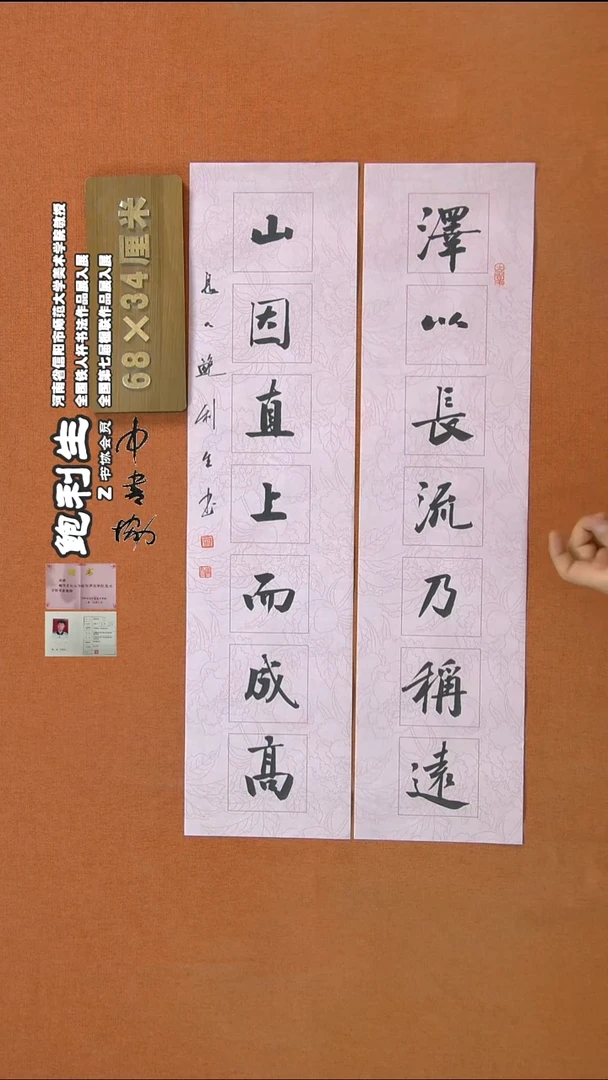 澤以長流乃稱遠
山因直上而成高
鲍利生书
68×34厘米
河南省信阳市师范大学美术学院教授
全国铁人杯书法作品展入展
全国第七届楹联作品展入展
鲍利生
书协会员
中书协